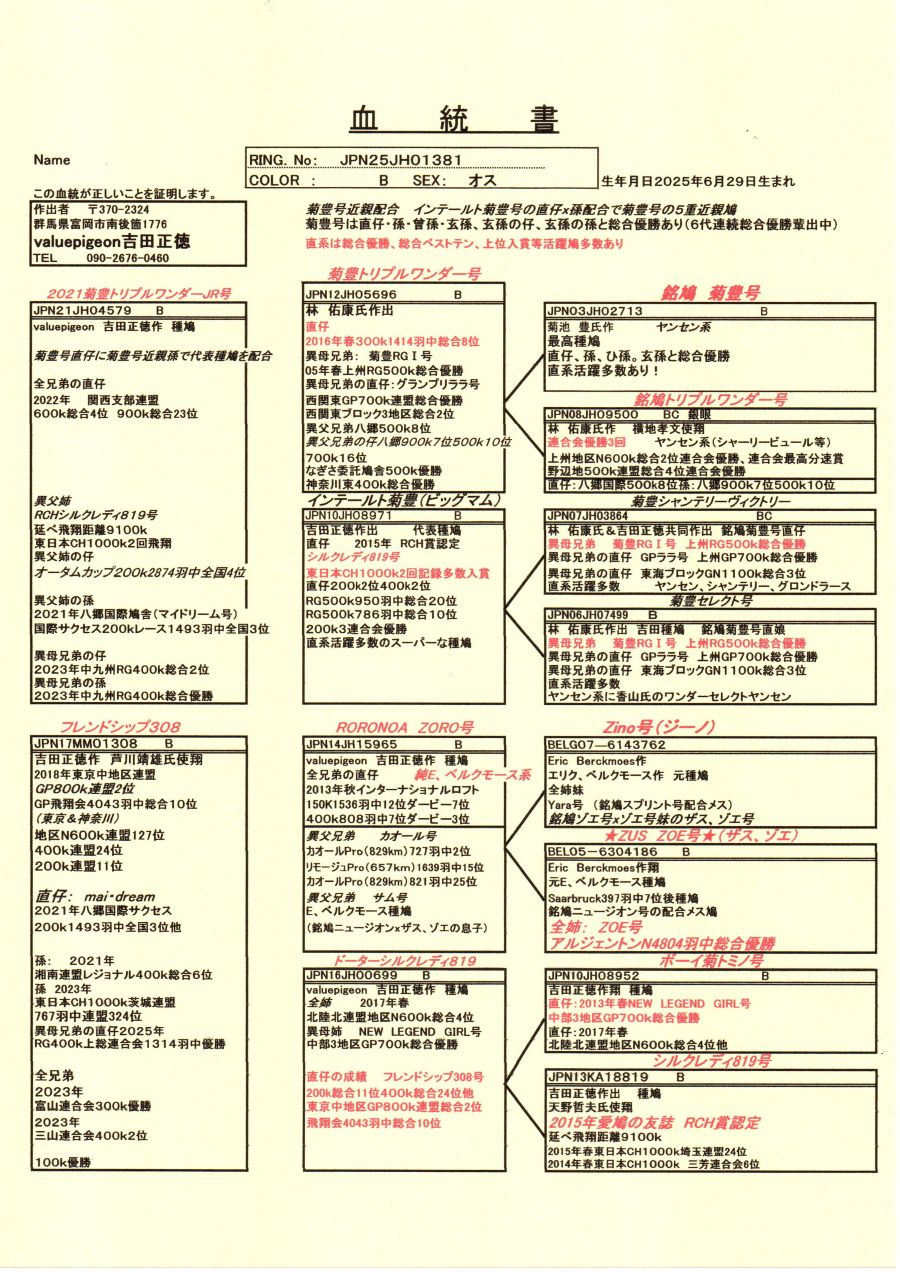 血　統　書
Name
RING. No: JPN25JH01381
COLOR : B SEX: オス
生年月日2025年6月29日生まれ
この血統が正しいことを証明します。
作出者　〒370-2324
群馬県富岡市南後箇1776
valuepigeon吉田正徳
TEL 090-2676-0460
菊豊号近親配合　インテールト菊豊号の直仔x孫配合で菊豊号の5重近親鳩
菊豊号は直仔・孫・曾孫・玄孫、玄孫の仔、玄孫の孫と総合優勝あり(6代連続総合優勝輩出中)
直系は総合優勝、総合ベストテン、上位入賞等活躍鳩多数あり
2021菊豊トリプルワンダーJR号
JPN21JH04579 B
valuepigeon 吉田正徳作 種鳩
菊豊号直仔に菊豊号近親孫で代表種鳩を配合
全兄弟の直仔
2022年　関西支部連盟
600k総合4位 900k総合23位
異父姉
RCHシルクレディ819号
延べ飛翔距離9100k
東日本CH1000k2回飛翔
異父姉の仔
オータムカップ200k2874羽中全国4位
異父姉の孫
2021年八郷国際鳩舎(マイドリーム号)
国際サクセス200kレース1493羽中全国3位
異母兄弟の仔
2023年中九州RG400k総合2位
異母兄弟の孫
2023年中九州RG400k総合優勝
フレンドシップ308
JPN17MM01308 B
吉田正徳作 芦川靖雄氏使翔
2018年東京中地区連盟
GP800k連盟2位
GP飛翔会4043羽中総合10位
(東京&神奈川)
地区N600k連盟127位
400k連盟24位
200k連盟11位
直仔: mai・dream
2021年八郷国際サクセス
200k1493羽中全国3位他
孫: 2021年
湘南連盟レジョナル400k総合6位
孫 2023年
東日本CH1000k茨城連盟
767羽中連盟324位
異母兄弟の直仔2025年
RG400k上総連合会1314羽中優勝
全兄弟
2023年
富山連合会300k優勝
2023年
三山連合会400k2位
100k優勝
菊豊トリプルワンダー号
JPN12JH05696 B
林 佑康氏作出
直仔
2016年春300k1414羽中総合8位
異母兄弟: 菊豊RGⅠ号
05年春上州RG500k総合優勝
異母兄弟の直仔:グランプリララ号
西関東GP700k連盟総合優勝
西関東ブロック3地区総合2位
異父兄弟八郷500k8位
異父兄弟の仔八郷900k7位500k10位
700k16位
なぎさ委託鳩舎500k優勝
神奈川東400k総合優勝
インテールト菊豊(ビッグマム)
JPN10JH08971 B
吉田正徳作出　　代表種鳩
直仔　2015年 RCH賞認定
シルクレディ819号
東日本CH1000k2回記録多数入賞
直仔200k2位400k2位
RG500k950羽中総合20位
RG500k786羽中総合10位
200k3連合会優勝
直系活躍多数のスーパーな種鳩
RORONOA ZORO号
JPN14JH15965 B
valuepigeon 吉田正徳作出
全兄弟の直仔　純E、ベルクモース系
2013年秋インターナショナルロフト
150K1536羽中12位ダービー7位
400k808羽中7位ダービー3位
異父兄弟　カオール号
カオールPro(829km)727羽中2位
リモージュPro(657km)1639羽中15位
カオールPro(829km)821羽中25位
異父兄弟　サム号
E、ベルクモース種鳩
(銘鳩ニュージオンxザス、ゾエの息子)
ドーターシルクレディ819
JPN16JH00699 B
valuepigeon 吉田正徳作 種鳩
全姉　2017年春
北陸北連盟地区N600k総合4位
異母姉 NEW LEGEND GIRL号
中部3地区GP700k総合優勝
直仔の成績　フレンドシップ308号
200k総合11位400k総合24位他
東京中地区GP800k連盟総合2位
飛翔会4043羽中総合10位
銘鳩 菊豊号
JPN03JH02713 B
菊池 豊氏作　　ヤンセン系
最高種鳩
直仔、孫、ひ孫。玄孫と総合優勝
直系活躍多数あり!
銘鳩トリプルワンダー号
JPN08JH09500 BC 銀眼
林 佑康氏作　横地孝文使翔
連合会優勝3回　　ヤンセン系(シャーリービュール等)
上州地区N600k総合2位連合会優勝、連合会最高分速賞
野辺地500k連盟総合4位連合会優勝
直仔:八郷国際500k8位孫:八郷900k7位500k10位
菊豊シャンテリーヴィクトリー
JPN07JH03864 BC
林 佑康氏&吉田正徳共同作出 銘鳩菊豊号直仔
異母兄弟　菊豊RGⅠ号 上州RG500k総合優勝
異母兄弟の直仔 GPララ号 上州GP700k総合優勝
異母兄弟の直仔 東海ブロックGN1100k総合3位
直系活躍多数　　ヤンセン、シャンテリー、グロンドラース
菊豊セレクト号
JPN06JH07499 B
林 佑康氏作出 吉田種鳩　銘鳩菊豊号直娘
異母兄弟　菊豊RGⅠ号 上州RG500k総合優勝
異母兄弟の直仔 GPララ号 上州GP700k総合優勝
異母兄弟の直仔 東海ブロックGN1100k総合3位
直系活躍多数
ヤンセン系に香山氏のワンダーセレクトヤンセン
Zino号(ジーノ)
BELG07-6143762
Eric Berckmoes作
エリク、ベルクモース作 元種鳩
全姉妹
Yara号 (銘鳩スプリント号配合メス)
銘鳩ゾエ号xゾエ号妹のザス、ゾエ号
★ZUS ZOE号★(ザス、ゾエ)
BEL05-6304186 B
Eric Berckmoes作翔
元E、ベルクモース種鳩
Saarbruck397羽中7位後種鳩
銘鳩ニュージオン号の配合メス鳩
全姉: ZOE号
アルジェントンN4804羽中総合優勝
ボーイ菊トミノ号
JPN10JH08952 B
吉田正徳作翔 種鳩
直仔:2013年春NEW LEGEND GIRL号
中部3地区GP700k総合優勝
直仔:2017年春
北陸北連盟地区N600k総合4位他
シルクレディ819号
JPN13KA18819 B
吉田正徳作出　種鳩
天野哲夫氏使翔
2015年愛鳩の友誌 RCH賞認定
延べ飛翔距離9100k
2015年春東日本CH1000k埼玉連盟24位
2014年春東日本CH1000k 三芳連合会6位